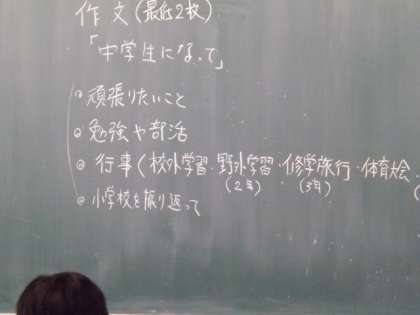 作文(最低2枚)
「中学生になって」
◎頑張りたいこと
◎勉強や部活
◎行事(校外学習・野外学習・修学旅行・体育大会・
(2年) (3年)
◎小学校を振り返って